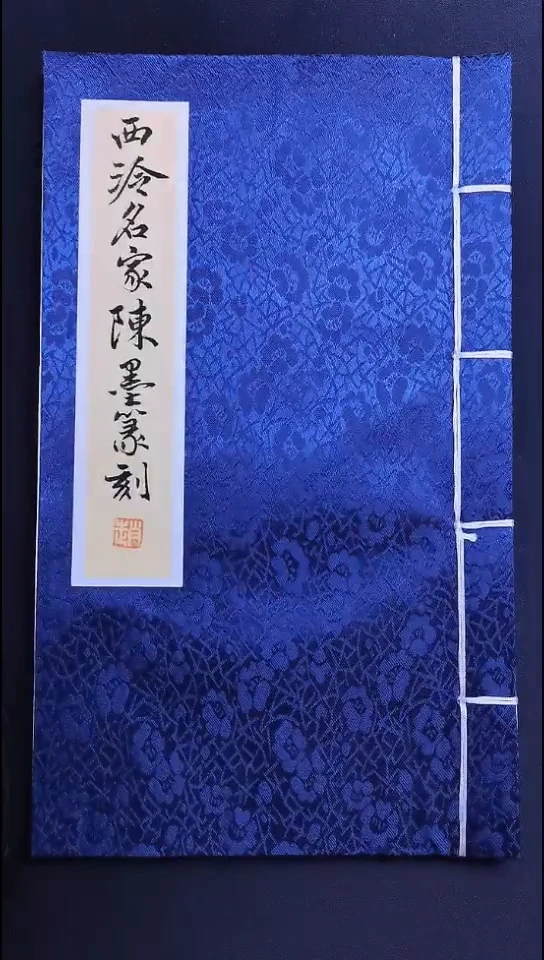 西泠名家陳墨篆刻